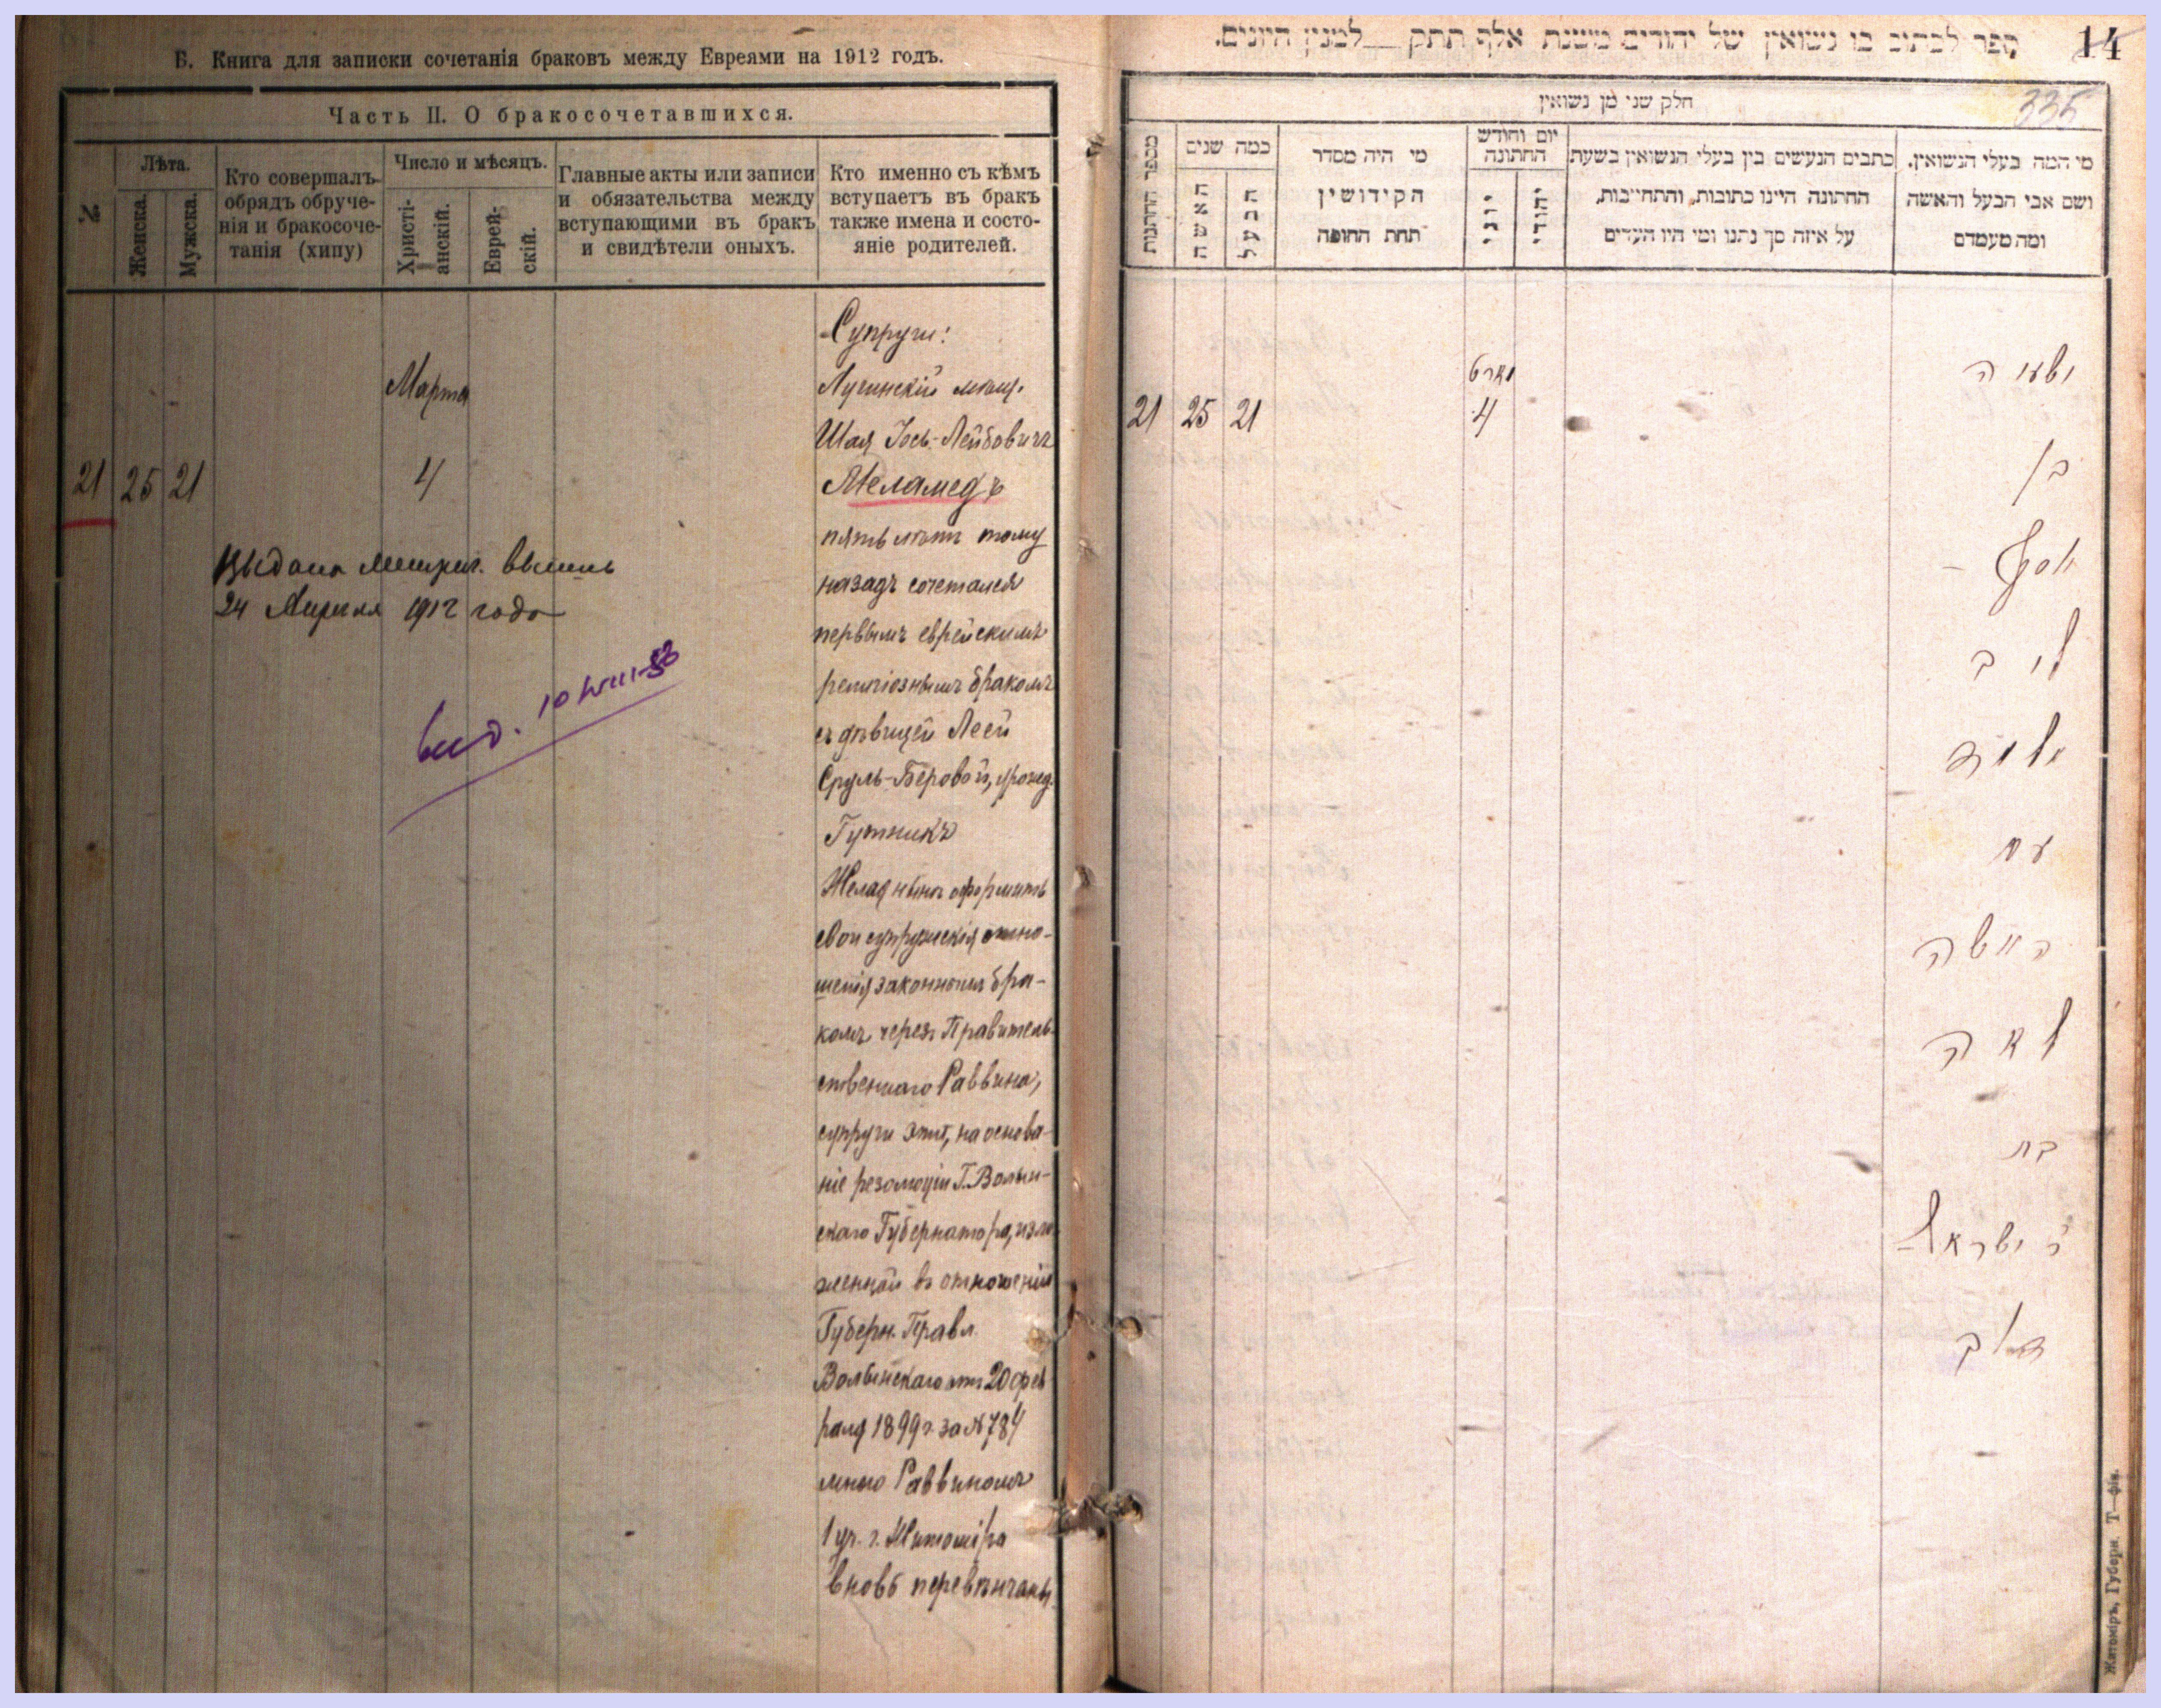 Б. Книга для записки сочетанія браковъ между Евреями на 1912 годъ.
Часть II. О бракосочетавшихся.
№
Лѣта.
Женска.
Мужска.
Кто совершалъ
обрядъ обруче-
нія и бракосоче-
танія (хипу)
Число и мѣсяцъ.
Христі-
анскій.
Еврей-
скій.
Главные акты или записи
и обязательства между
вступающими въ бракъ
и свидѣтели оныхъ.
Кто именно съ кѣмъ
вступаетъ въ бракъ
также имена и состо-
яніе родителей.
21 25 21
Марта
4
Супруги:
Лугинскій мѣщ.
Шая Іось-Лейбовичъ
Меламедъ
пять лѣтъ тому
назадъ сочетался
первымъ еврейскимъ
религіознымъ бракомъ
съ дѣвицей Леей
Сруль-Беровой, урожд.
Гутникъ
Желая нынѣ оформить
свои супружескія отно-
шенія законнымъ бра-
комъ через Правитель-
ственнаго Раввина,
супруги эти, на основа-
ніе резолюціи Г. Волын-
скаго Губернатора, изло-
женной въ отношеніи
Губерн. Правл.
Волынскаго отъ 20 фев
раля 1899 г. за № 784
мною Раввиномъ
1 уч. г. Житоміра
вновь перевѣнчаны
Выдана метрич. выпись
24 Апреля 1912 года
выд. 10
ספר לכתוב בו נשואין של יהודים משנת אלף תתק למנין היונים.
14
335
חלק שני מן נשואין
מספר החתנות
כמה שנים
האשה
הבעל
מי היה מסדר
הקידושין
תחת החופה
יום וחודש
החתונה
יוני
יהודי
כתבים הנעשים בין בעלי הנשואין בשעת
החתונה היינו כתובות, והתחייבות,
על איזה סך נתנו ומי היו העדים
מי המה בעלי הנשואין,
ושם אבי הבעל והאשה
ומה מעמדם
21 25 21
מארט
4
ישעיה
בן
יוסף
ליב
מלמד
עם
האשה
לאה
בת
ר ישראל
Житоміръ, Губерн. Т—фія.